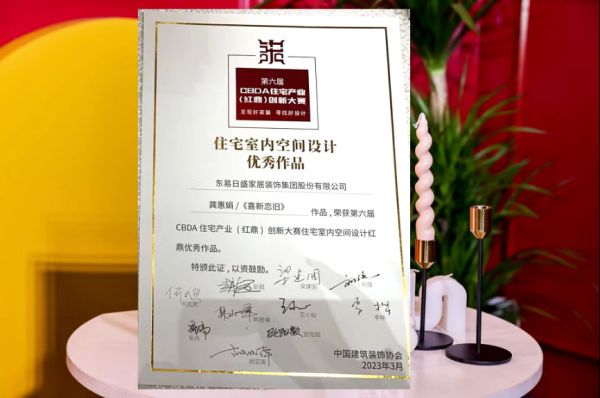 第六届
CBDA住宅产业
（红鼎）创新大赛
发现好家装 寻找好设计
住宅室内空间设计
优秀作品
东易日盛家居装饰集团股份有限公司
龚惠娟/《喜新恋旧》 作品，荣获第六届
CBDA 住宅产业（红鼎）创新大赛住宅室内空间设计红
鼎优秀作品。
特颁此证，以资鼓励。
梁建国
王小灿
中国建筑装饰协会
2023年3月